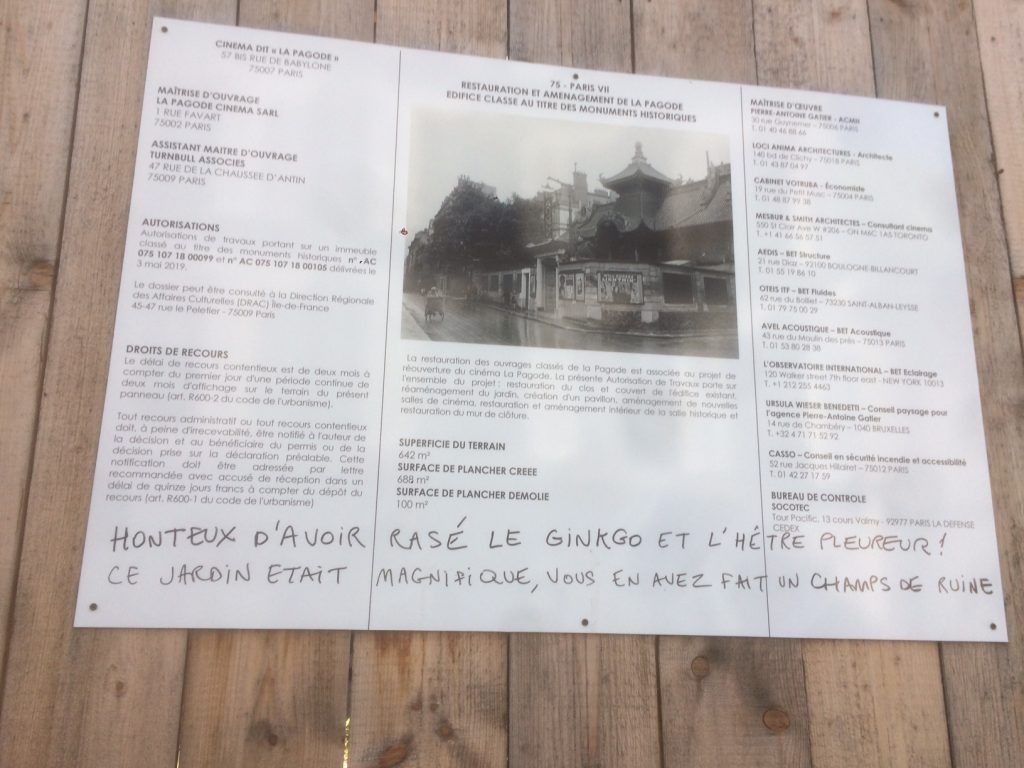 CINEMA DIT « LA PAGODE »
57 BIS RUE DE BABYLONE
75007 PARIS
MAÎTRISE D'OUVRAGE
LA PAGODE CINEMA SARL
1 RUE FAVART
75002 PARIS
ASSISTANT MAITRE D'OUVRAGE
TURNBULL ASSOCIES
47 RUE DE LA CHAUSSEE D'ANTIN
75009 PARIS
AUTORISATIONS
Autorisations de travaux portant sur un immeuble
classé au titre des monuments historiques n° AC
075 107 18 00099 et n° AC 075 107 18 00105 délivrées le
3 mai 2019.
Le dossier peut être consulté à la Direction Régionale
des Affaires Culturelles (DRAC) Île-de-France
45-47 rue le Peletier - 75009 Paris
DROITS DE RECOURS
Le délai de recours contentieux est de deux mois à
compter du premier jour d'une période continue de
deux mois d'affichage sur le terrain du présent
panneau (art. R600-2 du code de l'urbanisme).
Tout recours administratif ou tout recours contentieux
doit, à peine d'irrecevabilité, être notifié à l'auteur de
la décision et au bénéficiaire du permis ou de la
décision prise sur la déclaration préalable. Cette
notification doit être adressée par lettre
recommandée avec accusé de réception dans un
délai de quinze jours francs à compter du dépôt du
recours (art. R600-1 du code de l'urbanisme)
75 - PARIS VII
RESTAURATION ET AMENAGEMENT DE LA PAGODE
EDIFICE CLASSE AU TITRE DES MONUMENTS HISTORIQUES
La restauration des ouvrages classés de la Pagode est associée au projet de
réouverture du cinéma La Pagode. La présente Autorisation de Travaux porte sur
l'ensemble du projet : restauration du clos et couvert de l'édifice existant,
réaménagement du jardin, création d'un pavillon, aménagement de nouvelles
salles de cinéma, restauration et aménagement intérieur de la salle historique et
restauration du mur de clôture.
SUPERFICIE DU TERRAIN
642 m²
SURFACE DE PLANCHER CREEE
688 m²
SURFACE DE PLANCHER DEMOLIE
100 m²
MAÎTRISE D'ŒUVRE
PIERRE-ANTOINE GATIER - ACMH
30 rue Guynemer – 75006 PARIS
T. 01 40 46 88 66
LOCI ANIMA ARCHITECTURES - Architecte
140 bd de Clichy – 75018 PARIS
T. 01 43 87 04 97
CABINET VOTRUBA - Économiste
19 rue du Petit Musc – 75004 PARIS
T. 01 48 87 99 38
MESBUR & SMITH ARCHITECTES – Consultant cinema
550 St Clair Ave W #206 – ON M6C 1A5 TORONTO
T. +1 41 66 56 57 51
AEDIS – BET Structure
21 rue Diaz – 92100 BOULOGNE-BILLANCOURT
T. 01 55 19 86 10
OTEIS ITF – BET Fluides
62 rue du Bolliet – 73230 SAINT-ALBAN-LEYSSE
T. 01 79 75 00 29
AVEL ACOUSTIQUE – BET Acoustique
43 rue du Moulin des prés – 75013 PARIS
T. 01 53 80 28 38
L'OBSERVATOIRE INTERNATIONAL – BET Eclairage
120 Walker street 7th floor east - NEW YORK 10013
T. +1 212 255 4463
URSULA WIESER BENEDETTI – Conseil paysage pour
l'agence Pierre-Antoine Gatier
14 rue de Chambéry – 1040 BRUXELLES
T. +32 4 71 71 52 92
CASSO – Conseil en sécurité incendie et accessibilité
52 rue Jacques Hillairet – 75012 PARIS
T. 01 42 27 17 59
BUREAU DE CONTROLE
SOCOTEC
Tour Pacific, 13 cours Valmy - 92977 PARIS LA DEFENSE
CEDEX
HONTEUX D'AVOIR RASÉ LE GINKGO ET L'HÊTRE PLEUREUR !
CE JARDIN ETAIT MAGNIFIQUE, VOUS EN AVEZ FAIT UN CHAMPS DE RUINE